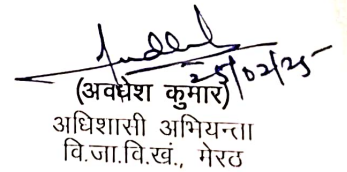 25/02/25
(अवधेश कुमार)
अधिशासी अभियन्ता
वि.जा.वि.खं., मेरठ